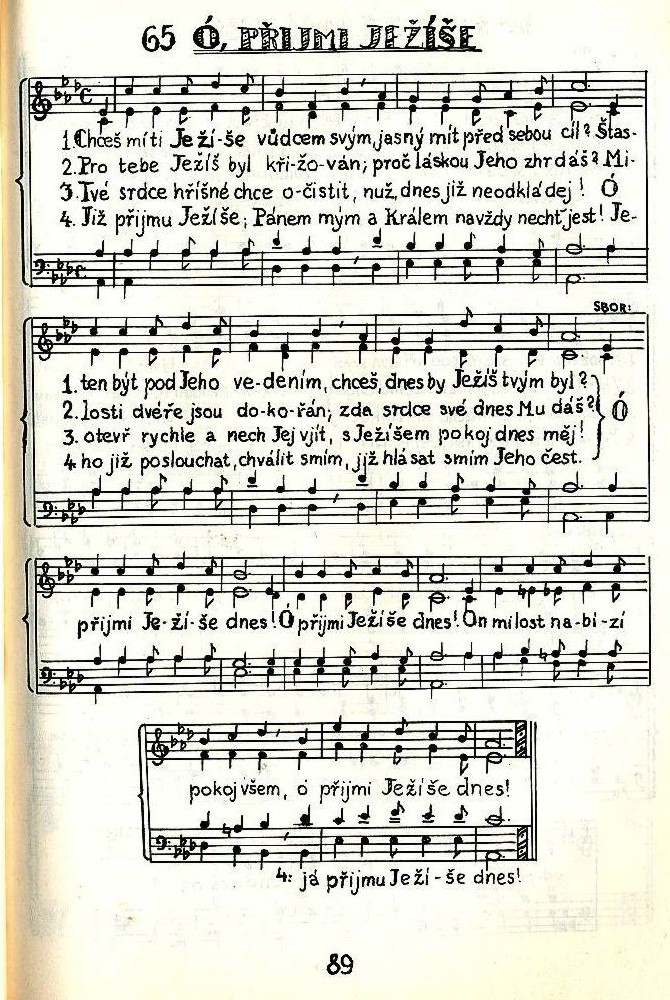 65 Ó, PŘIJMI JEŽÍŠE
1. Chceš míti Je ží-še vůdcem svým, jasný mít před sebou cíl? Štas-
2. Pro tebe Ježíš byl kři-žo-ván; proč láskou Jeho zhrdáš? Mi-
3. Tvé srdce hříšné chce o-čistit, nuž, dnes již neodkládej! Ó
4. Již přijmu Ježíše; Pánem mým a Králem navždy nechť jest! Je-
SBOR:
1. ten být pod Jeho ve-dením, chceš, dnes by Ježíš tvým byl?
2. losti dvéře jsou do-ko-řán; zda srdce své dnes Mu dáš? Ó
3. otevř rychle a nech Jej vjít, s Ježíšem pokoj dnes měj!
4. ho již poslouchat, chválit smím, již hlásat smím Jeho čest.
přijmi Je-ží-še dnes! Ó přijmi Ježíše dnes! On milost na-bí-zí
pokoj všem, ó přijmi Ježíše dnes!
4: já přijmu Ježí-še dnes!
89